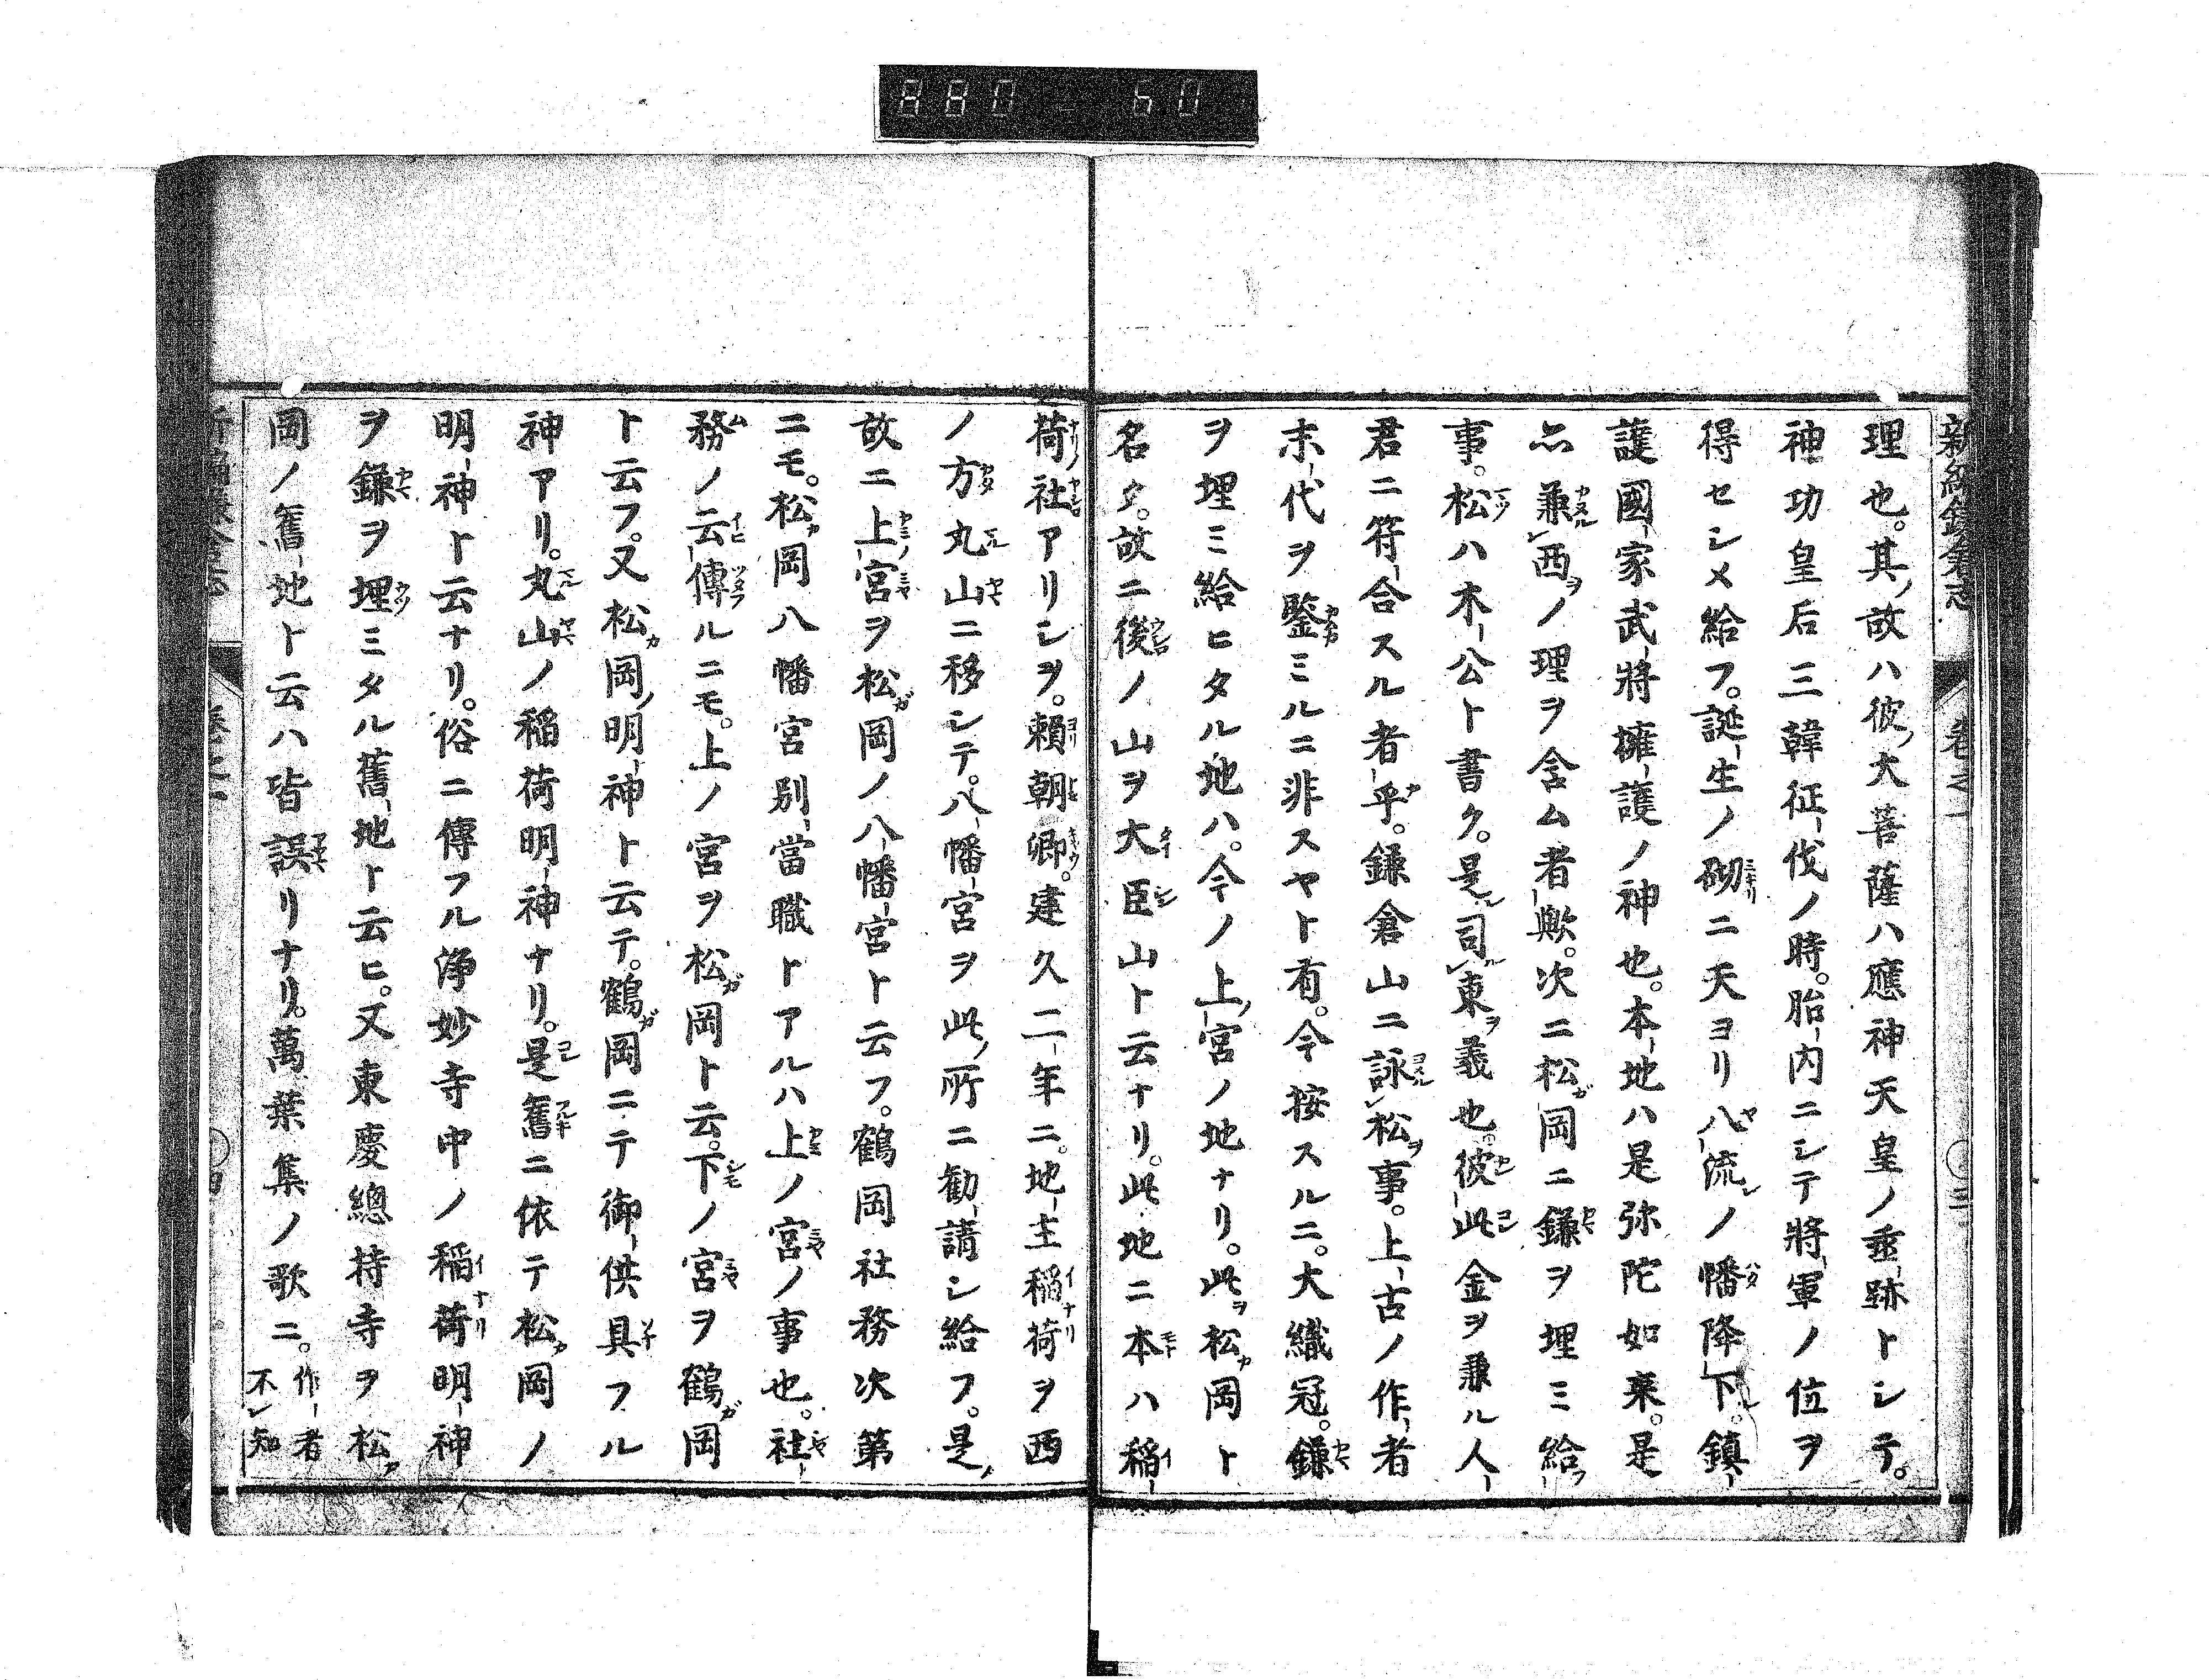 新編鎌倉志 卷之一 ○三
理也。其故ハ彼大菩薩ハ應神天皇ノ垂跡トシテ。
神功皇后三韓征伐ノ時。胎内ニシテ將軍ノ位ヲ
得セシメ給フ。誕生ノ砌ニ天ヨリ八流ノ幡降下。鎮
護國家武將擁護ノ神也。本地ハ是弥陀如来。是
亦兼西ノ理ヲ含ム者歟。次ニ松岡ニ鎌ヲ埋ミ給
事。松ハ木公ト書ク。是司東義也。彼此金ヲ兼ル人
君ニ符合スル者乎。鎌倉山ニ詠松事。上古ノ作者
末代ヲ鑒ミルニ非スヤト有。今按スルニ。大織冠。鎌
ヲ埋ミ給ヒタル地ハ。今ノ上宮ノ地ナリ。此ヲ松岡ト
名ク。故ニ後ノ山ヲ大臣山ト云ナリ。此地ニ本ハ稲
荷社アリシヲ。賴朝卿。建久二年ニ。地主稲荷ヲ西
ノ方丸山ニ移シテ。八幡宮ヲ此所ニ勧請シ給フ。是
故ニ上宮ヲ松岡ノ八幡宮ト云フ。鶴岡社務次第
ニモ。松岡八幡宮別當職トアルハ上ノ宮ノ事也。社
務ノ云傳ルニモ。上ノ宮ヲ松岡ト云。下ノ宮ヲ鶴岡
ト云フ。又松岡明神ト云テ。鶴岡ニテ御供具フル
神アリ。丸山ノ稲荷明神ナリ。是舊ニ依テ松岡ノ
明神ト云ナリ。俗ニ傳フル浄妙寺中ノ稲荷明神
ヲ鎌ヲ埋ミタル舊地ト云ヒ。又東慶總持寺ヲ松
岡ノ舊地ト云ハ皆誤リナリ。萬葉集ノ歌ニ。作者不知